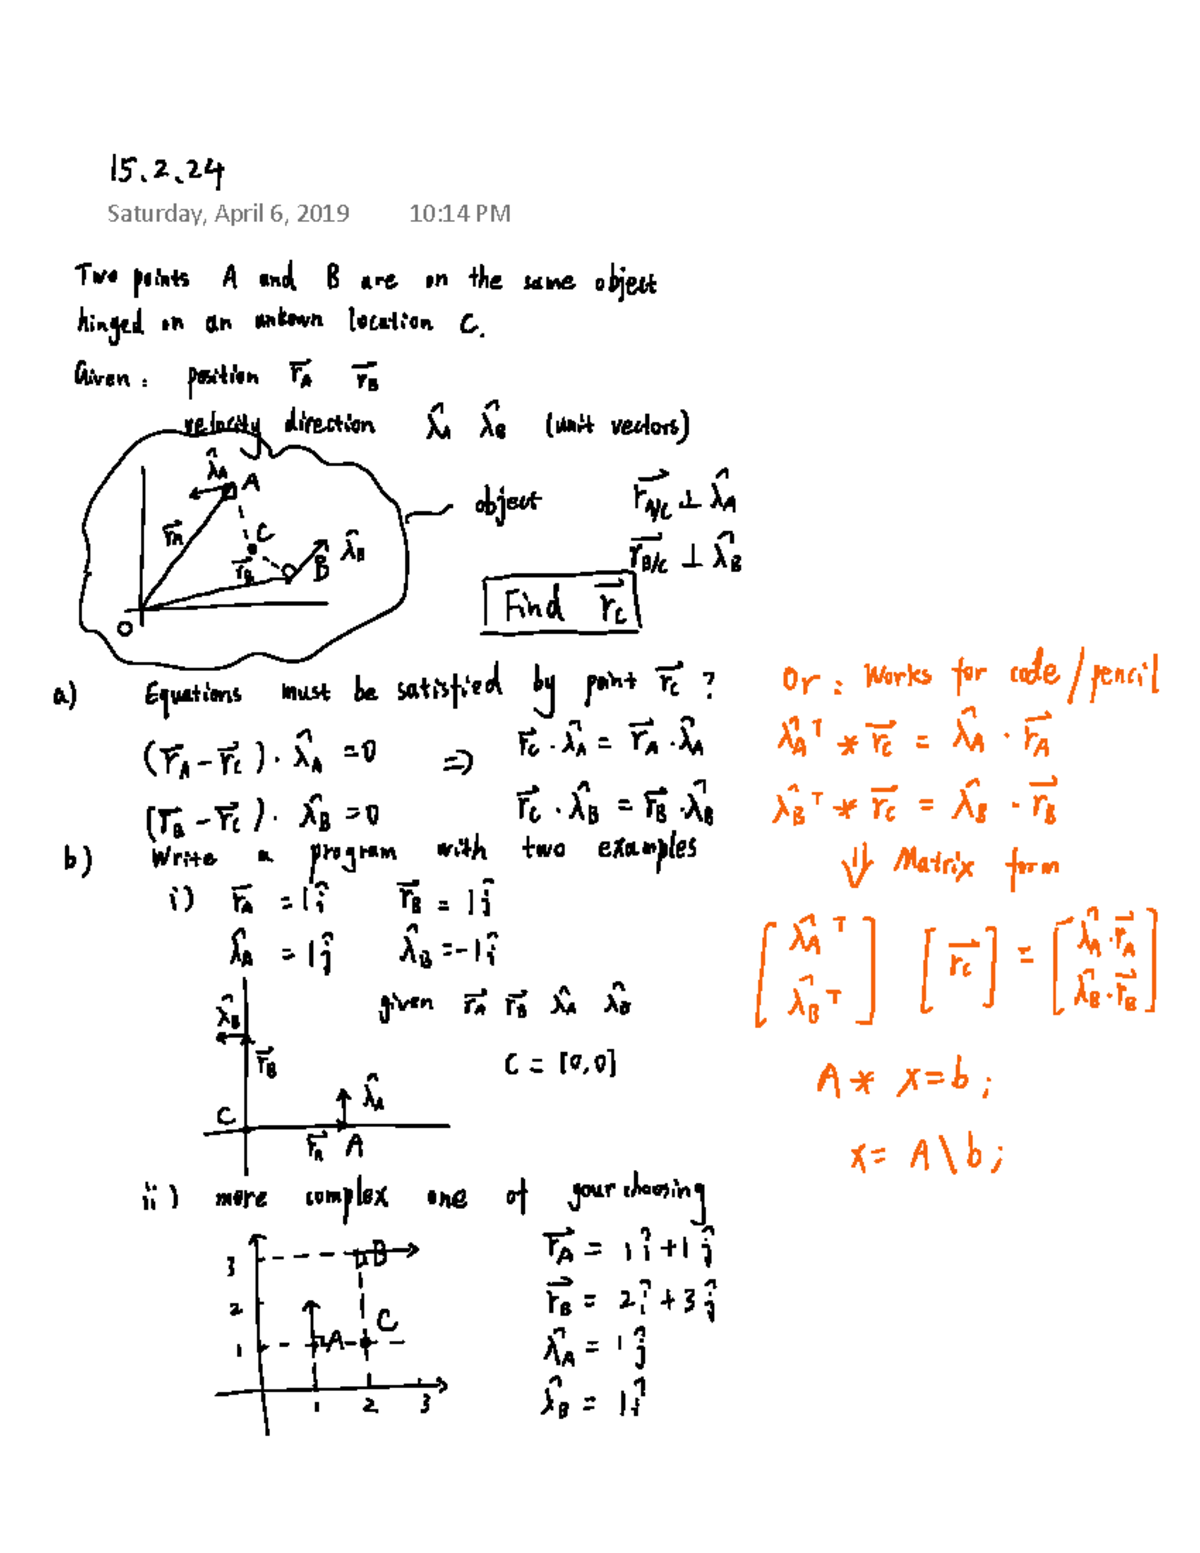 15.2.24
Saturday, April 6, 2019 10:14 PM
Two points A and B are on the same object
hinged on an unkown location C.
Given: position r⃗_A r⃗_B
velocity direction λ̂_A λ̂_B (unit vectors)
λ̂_A A
r⃗_A C λ̂_B
r⃗_B B
O
object r⃗_A/C ⊥ λ̂_A
r⃗_B/C ⊥ λ̂_B
Find r⃗_C
a) Equations must be satisfied by point r⃗_C ?
(r⃗_A - r⃗_C) · λ̂_A = 0 ⇒ r⃗_C · λ̂_A = r⃗_A · λ̂_A
(r⃗_B - r⃗_C) · λ̂_B = 0 r⃗_C · λ̂_B = r⃗_B · λ̂_B
Or: Works for code/pencil
λ̂_A^T * r⃗_C = λ̂_A · r⃗_A
λ̂_B^T * r⃗_C = λ̂_B · r⃗_B
⇓ Matrix form
[λ̂_A^T; λ̂_B^T] [r⃗_C] = [λ̂_A · r⃗_A; λ̂_B · r⃗_B]
A * x = b ;
x = A \ b ;
b) Write a program with two examples
i) r⃗_A = 1î r⃗_B = 1ĵ
λ̂_A = 1ĵ λ̂_B = -1î
given r⃗_A r⃗_B λ̂_A λ̂_B
C = [0,0]
λ̂_B
r⃗_B
λ̂_A
C
r⃗_A A
ii) more complex one of your choosing
3 B
2 C
1 A
1 2 3
r⃗_A = 1î + 1ĵ
r⃗_B = 2î + 3ĵ
λ̂_A = 1ĵ
λ̂_B = 1î